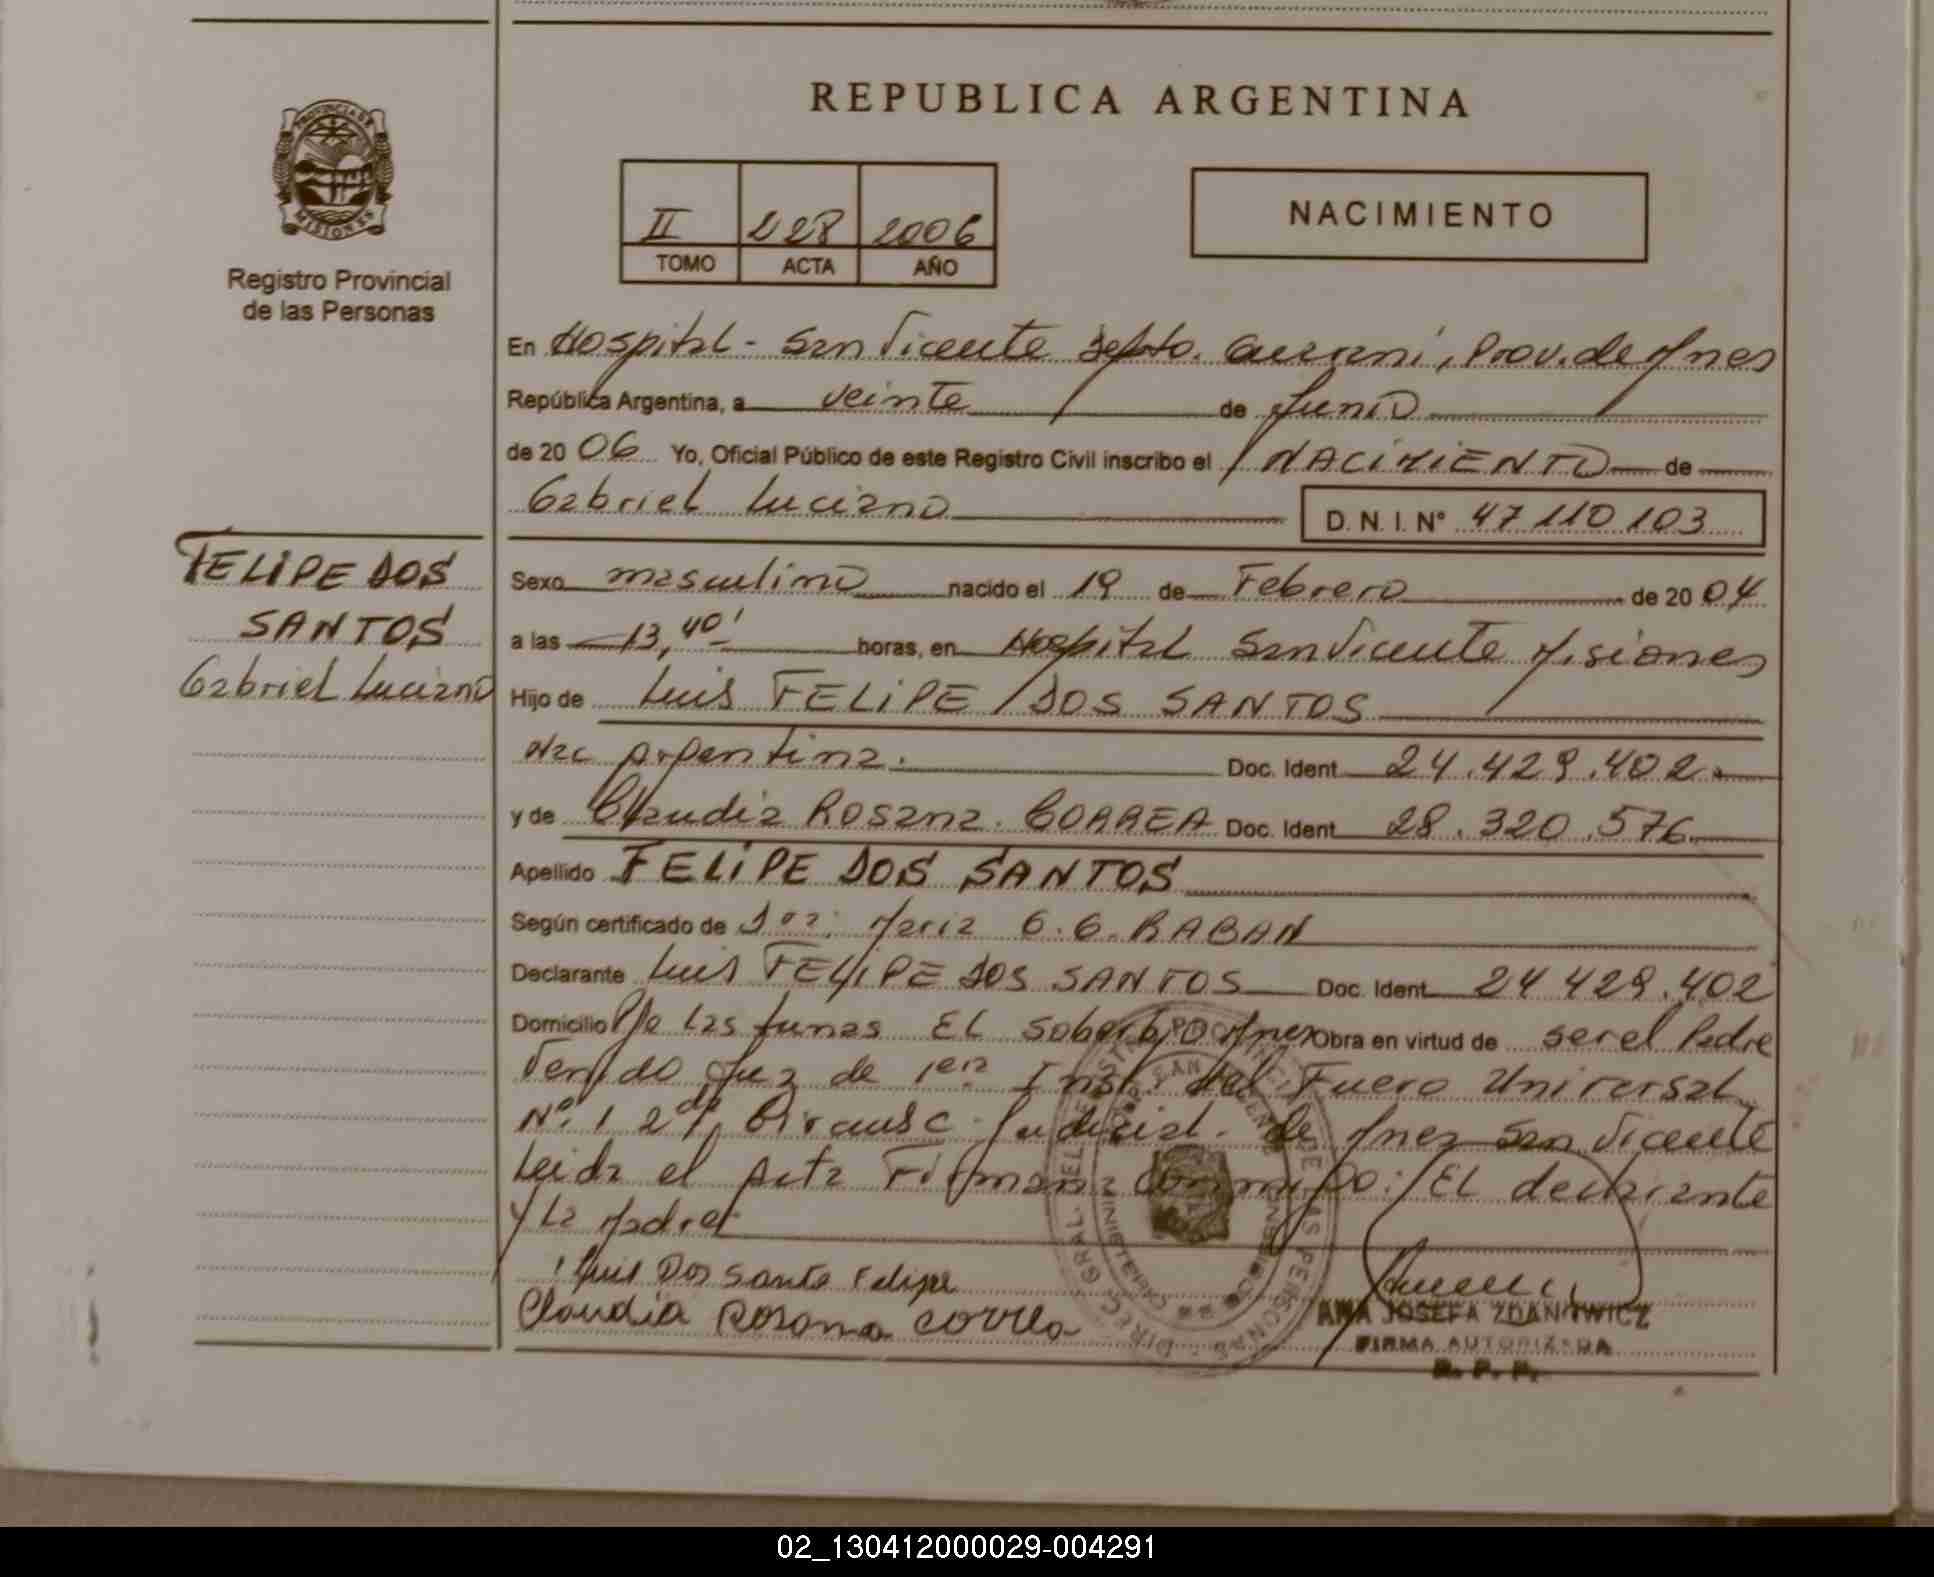 REPUBLICA ARGENTINA
PROVINCIA DE
MISIONES
Registro Provincial
de las Personas
II 228 2006
TOMO ACTA AÑO
NACIMIENTO
En Hospital - San Vicente Depto. Guarani, Prov. de Mnes
República Argentina, a veinte de Junio
de 2006 Yo, Oficial Público de este Registro Civil inscribo el NACIMIENTO de
Gabriel Luciano D. N. I. N° 47 110 103
FELIPE DOS
SANTOS
Gabriel Luciano
Sexo masculino nacido el 19 de Febrero de 2004
a las 13,40' horas, en Hospital San Vicente Misiones
Hijo de Luis FELIPE DOS SANTOS
Nac Argentina. Doc. Ident 24.429.402.
y de Claudia Rosana. CORREA Doc. Ident 28.320.576
Apellido FELIPE DOS SANTOS
Según certificado de Dra: Maria G. G. RABAN
Declarante Luis FELIPE DOS SANTOS Doc. Ident 24 429.402
Domicilio Pje Las Tunas El Soberbio Mnes Obra en virtud de ser el Padre
Juez de 1era Inst. del Fuero Universal
N° 1 2da Circunsc. Judicial. de Mnes San Vicente
Leida el Acta Firman conmigo: El declarante
y La Madre
Luis Dos Santo Felipe
Claudia Rosana Correa
ANA JOSEFA ZDANOWICZ
FIRMA AUTORIZADA
R. P. P.
02_130412000029-004291